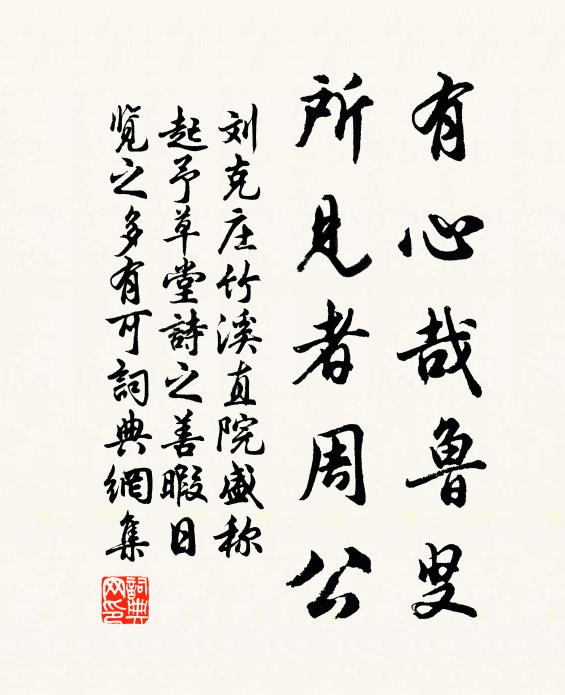 有心哉鲁叟
所見者周公
刘克庄竹溪直院盛称
起予草堂詩之善暇日
览之多有可詞典網集
詞典
网印